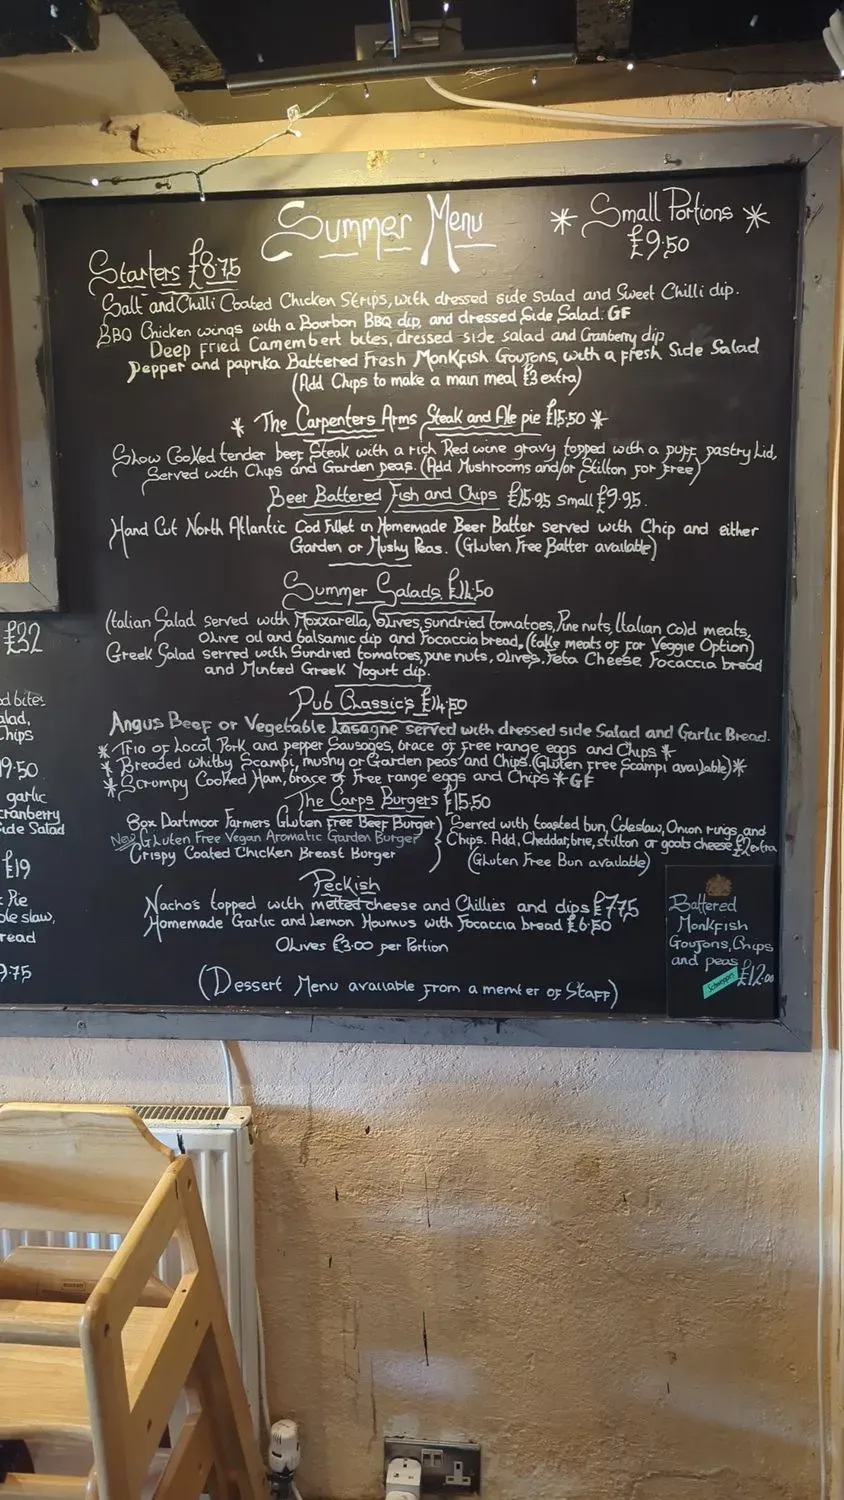 Summer Menu
* Small Portions *
£9.50
Starters £8.75
Salt and Chilli Coated Chicken Strips, with dressed side salad and Sweet Chilli dip.
BBQ Chicken wings with a Bourbon BBQ dip, and dressed Side Salad. GF
Deep Fried Camembert bites, dressed side salad and Cranberry dip
Pepper and paprika Battered Fresh Monkfish Goujons, with a fresh Side Salad
(Add Chips to make a main meal £3 extra)
* The Carpenters Arms Steak and Ale pie £15.50 *
Slow Cooked tender beef Steak with a rich Red wine gravy topped with a puff pastry Lid,
Served with Chips and Garden peas. (Add Mushrooms and/or Stilton for free)
Beer Battered Fish and Chips £15.95 Small £9.95.
Hand Cut North Atlantic Cod Fillet in Homemade Beer Batter served with Chip and either
Garden or Mushy Peas. (Gluten Free Batter available)
Summer Salads £14.50
Italian Salad served with Mozzarella, Olives, sundried tomatoes, Pine nuts, Italian cold meats,
Olive oil and balsamic dip and Focaccia bread, (take meats of for Veggie Option)
Greek Salad served with Sundried tomatoes, pine nuts, olives. Feta Cheese Focaccia bread
and Minted Greek Yogurt dip.
Pub Classic's £14.50
Angus Beef or Vegetable Lasagne served with dressed side Salad and Garlic Bread.
* Trio of Local Pork and pepper Sausages, brace of free range eggs and Chips *
* Breaded whitby Scampi, mushy or Garden peas and Chips. (Gluten free Scampi available) *
* Scrumpy Cooked Ham, brace of Free range eggs and Chips * GF
The Carps Burgers £15.50
8oz Dartmoor Farmers Gluten free Beef Burger
New Gluten Free Vegan Aromatic Garden Burger
Crispy Coated Chicken Breast Burger
Served with toasted bun, Coleslaw, Onion rings, and
Chips. Add, Cheddar, brie, stilton or goats cheese £2 extra
(Gluten Free Bun available)
Peckish
Nacho's topped with melted cheese and Chillies and dips £7.75
Homemade Garlic and Lemon Houmus with Focaccia bread £6.50
Olives £3.00 per Portion
(Dessert Menu available from a member of Staff)
Battered
Monkfish
Goujons, Chips
and peas
£12.00
Schweppes
£32
bites
alad,
Chips
19.50
garlic
cranberry
Side Salad
£19
Pie
ole slaw,
read
9.75